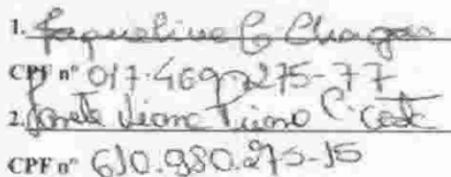 1. Jaqueline C Chagas
CPF nº 017.469.275-77
2. Viana C. Costa
CPF nº 610.980.275-15